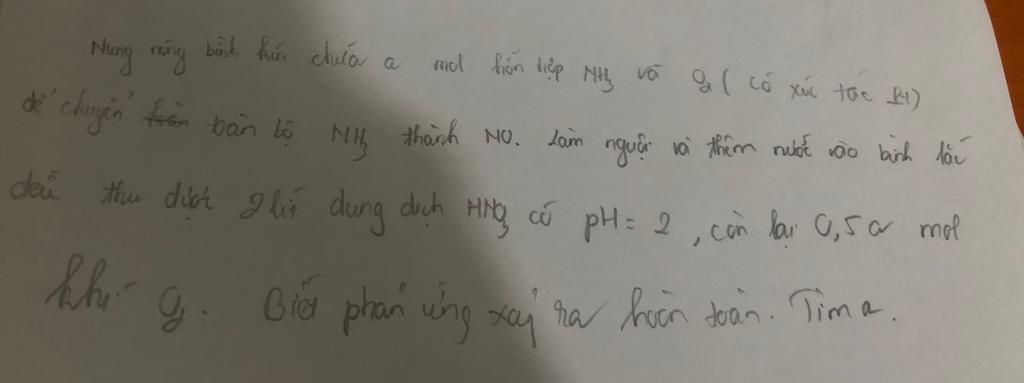 Nung nóng bình kín chứa a mol hỗn hợp NH3 và O2 ( có xúc tác Pt)
để chuyển toàn bộ NH3 thành NO. Làm nguội và thêm nước vào bình lắc
đều thu được 2 lít dung dịch HNO3 có pH = 2, còn lại 0,5a mol
khí O2. Biết phản ứng xảy ra hoàn toàn. Tìm a.